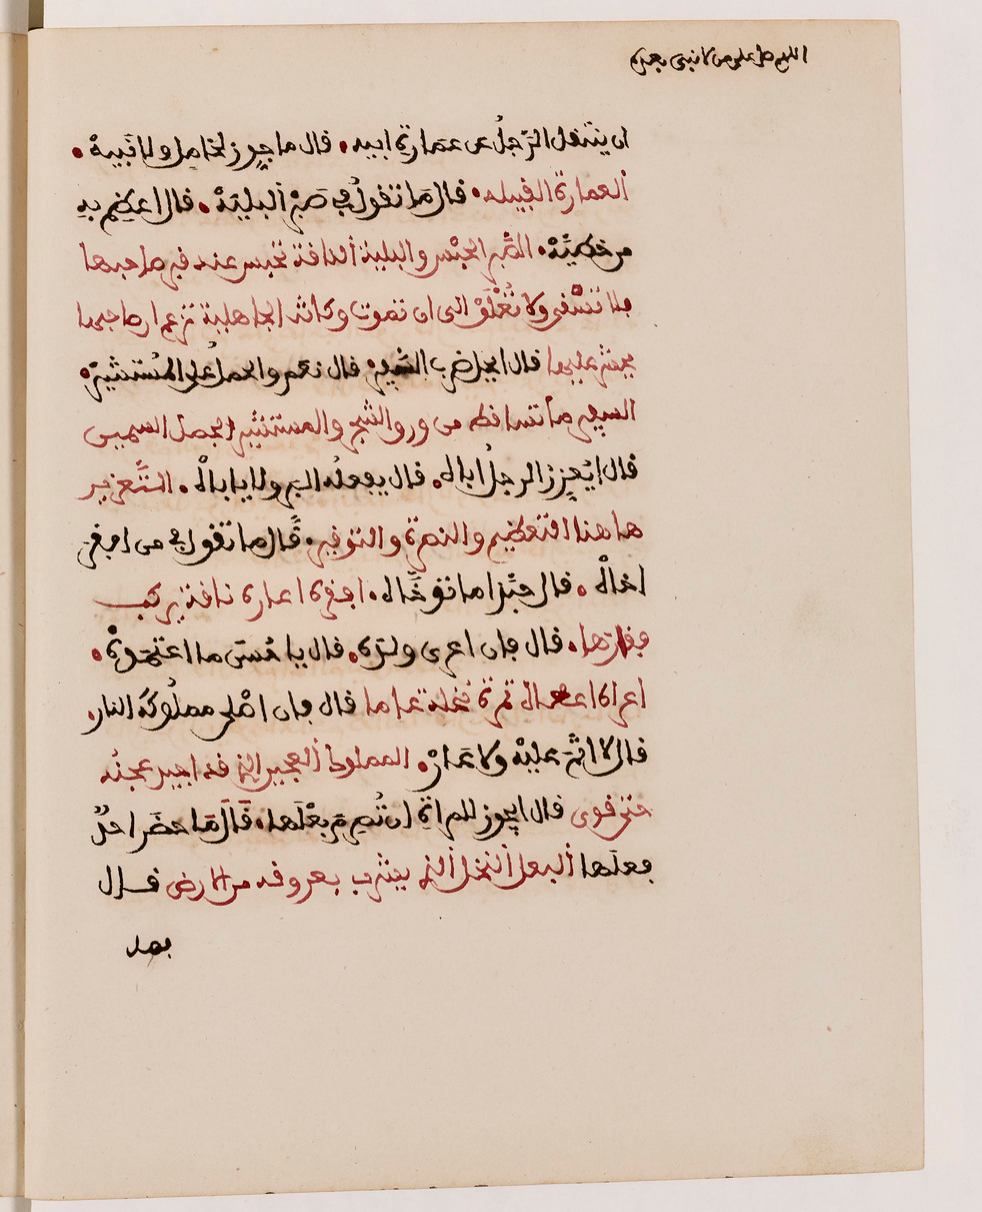 اللهم صل على من لا نبي بعده
ان ينتقل الرجل عن عمارة ابيه. قال ما جوز لخامل ولا نبيه.
العمارة القبيله. قال ما تقول في صبر البلية. قال اعظم به
من خطية. الصبر الحبس والبلية الناقة تحبس عند قبر صاحبها
فلا تسقى ولا تعلف الى ان تموت وكانت الجاهلية تزعم ان صاحبها
يحشر عليها قال ايحل ضرب السفير. قال نعم والحمل على المستشير.
السفير ما تساقط من ورق الشجر والمستشير الجمل السمين
قال ايعزر الرجل اباه. قال يفعله البر ولا ياباه. التعزير
هاهنا التعظيم والنصرة والتوقير. قال ما تقول في من افقر
اخاه. قال حبذا ما توخاه. افقره اعاره ناقة يركب
فقارها. قال فان اعرى ولده. قال يا حسن ما اعتمده.
اعراه اعطاه ثمرة نخلة عاما قال فان اصلى مملوكه النار.
قال لا اثم عليه ولا عار. المملوك العجين الذي قد اجيد عجنه
حتى قوي قال ايجوز للمراة ان تصرم بعلها. قال ما حضر احد
فعلها البعل النخل الذي يشرب بعروقه من الارض قال